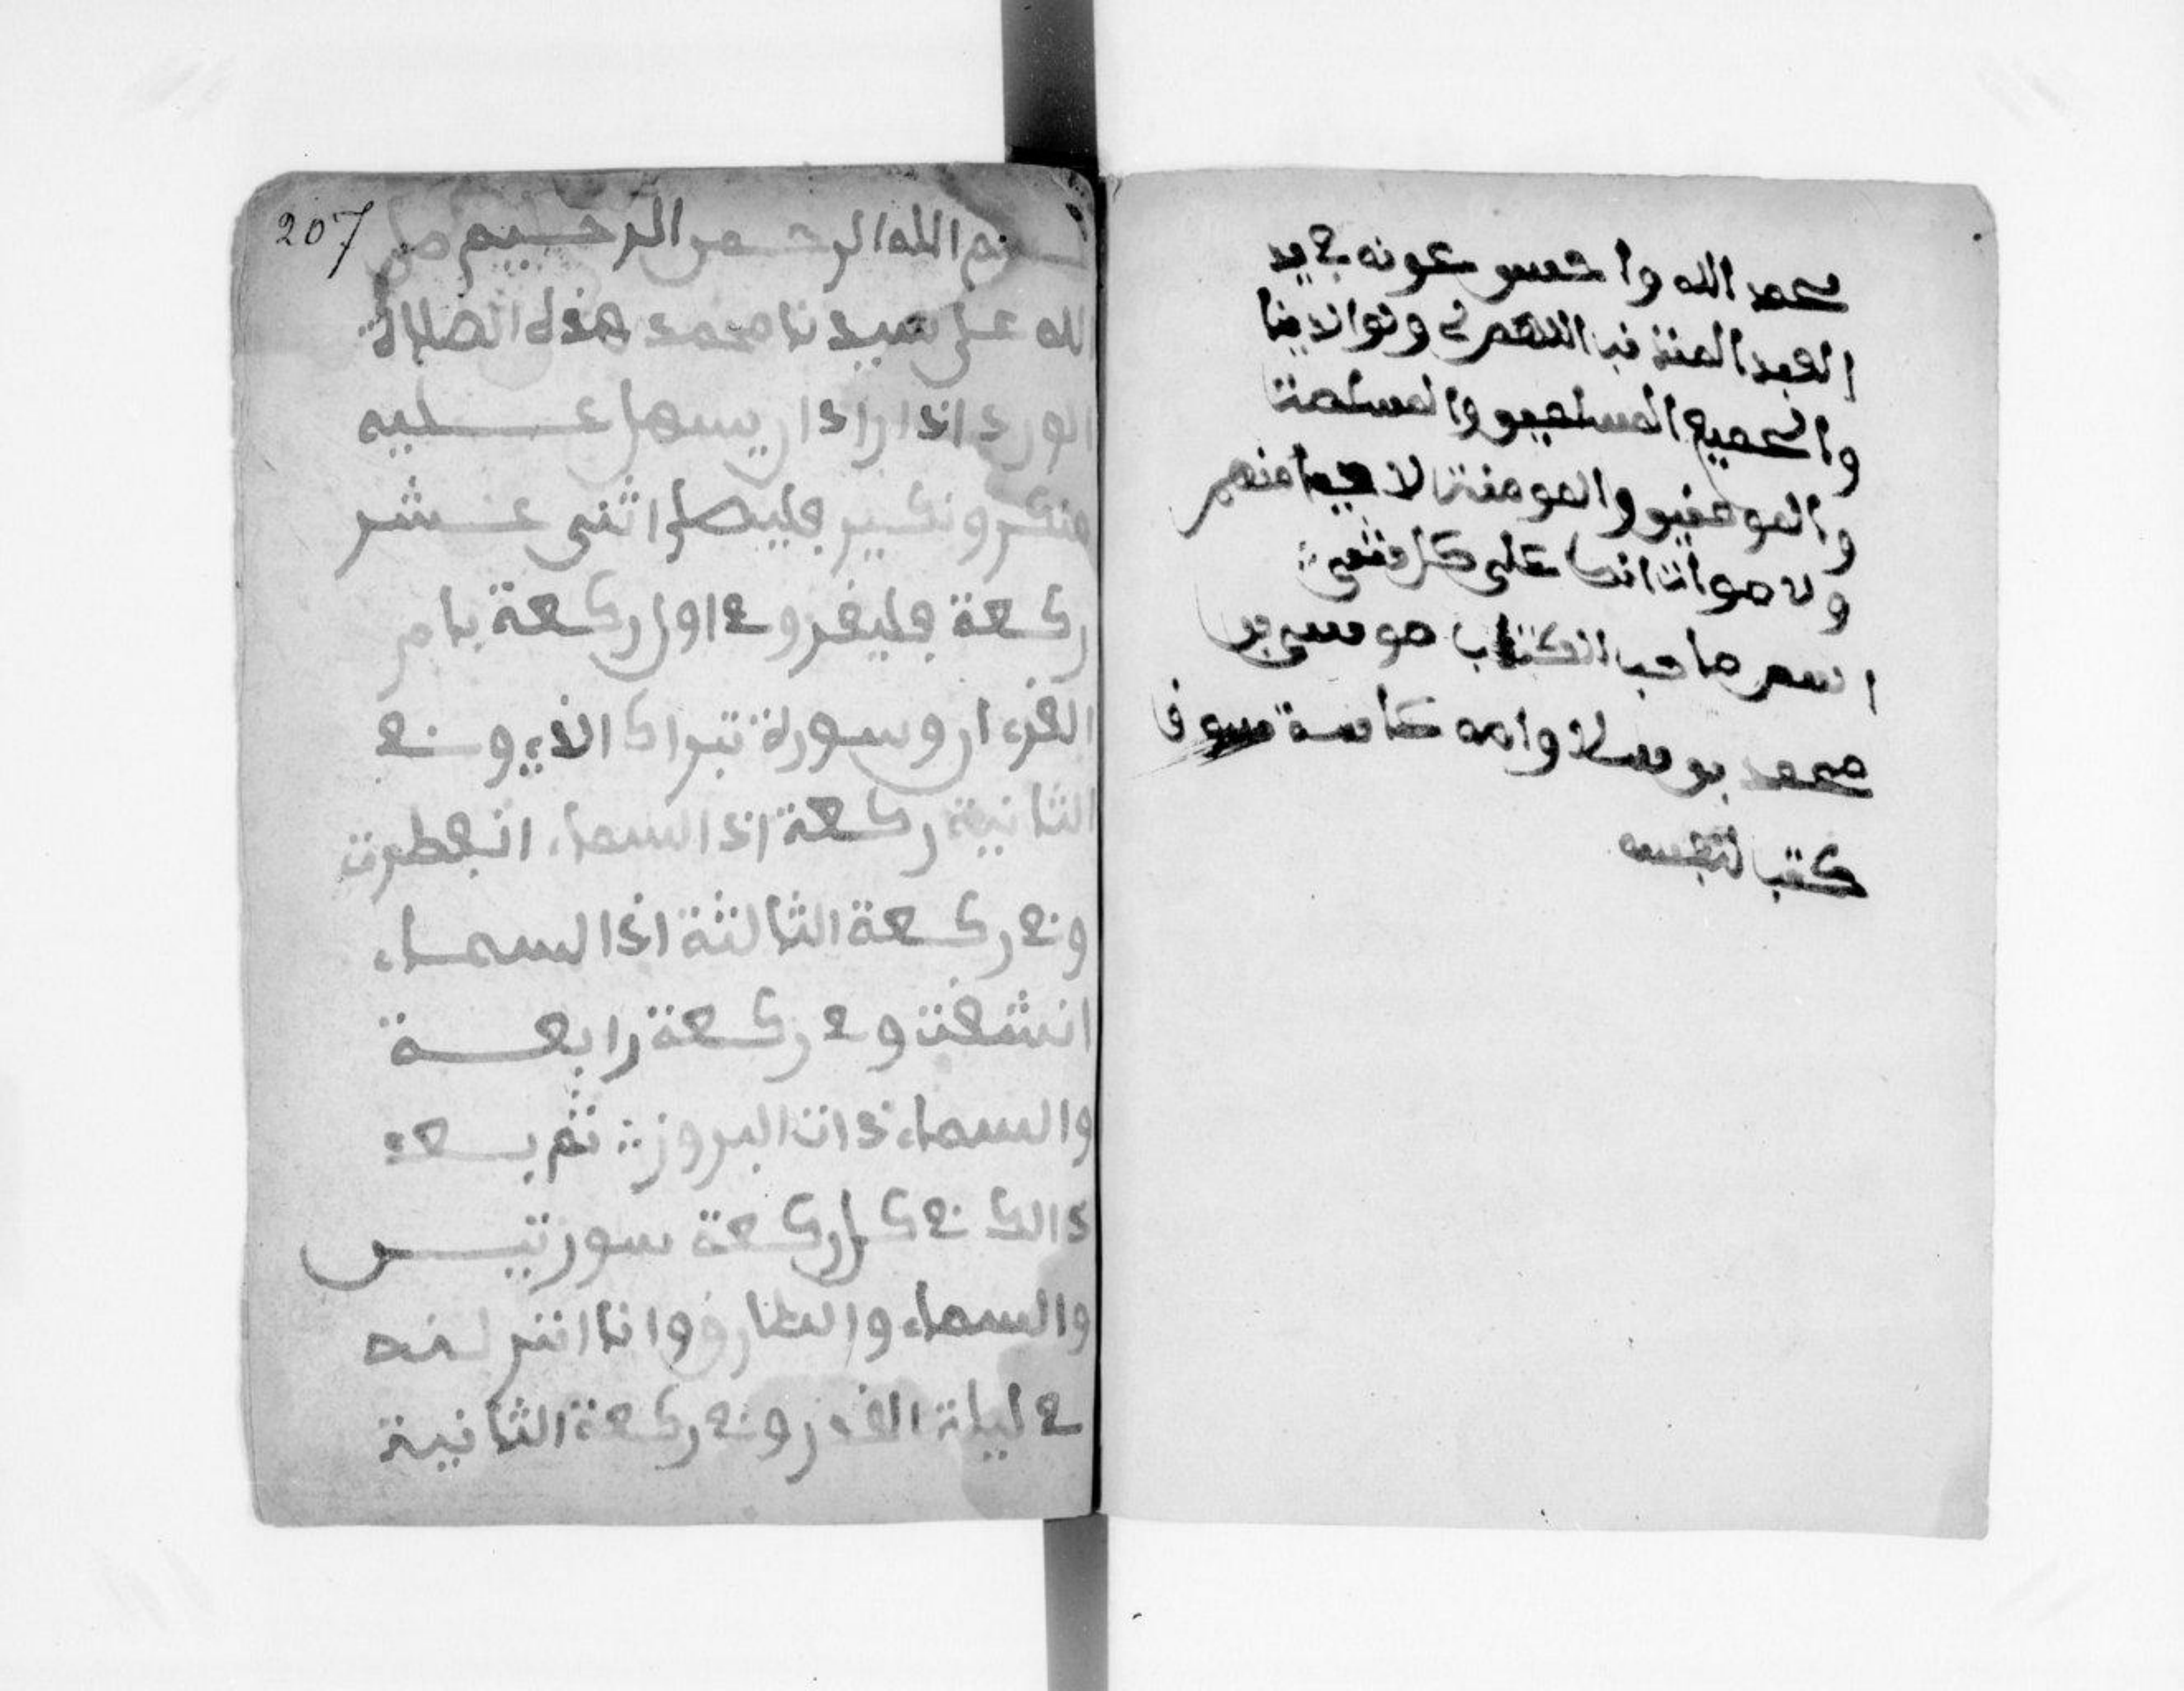 بحمد الله واحسن عونه في يد
العبد المذنب اللهم لي ولوالدينا
والجميع المسلمين والمسلمت
والمومنين والمومنت الاحيا منهم
ولاموات انك على كل شيء
اسم صاحب الكتاب موسى بن
محمد بن سلا وامه كاسة
كتب لنفسه
207
بسم الله الرحمن الرحيم صلى
الله على سيدنا محمد هذه الصلاة
الورد اذا اراد ان يسهل عليه
منكر ونكير فليصل اثنى عشر
ركعة فليقرو في اول ركعة بام
القرءان وسورة تبراك الذي وفي
الثانية ركعة اذا السماء انفطرت
وفي ركعة الثالثة اذا السماء
انشقت وفي ركعة رابعة
والسماء ذات البروز ثم بعد
ذالك في كل ركعة سورتيس
والسماء والطارق وانا انزلنه
في ليلة القدر وفي ركعة الثانية